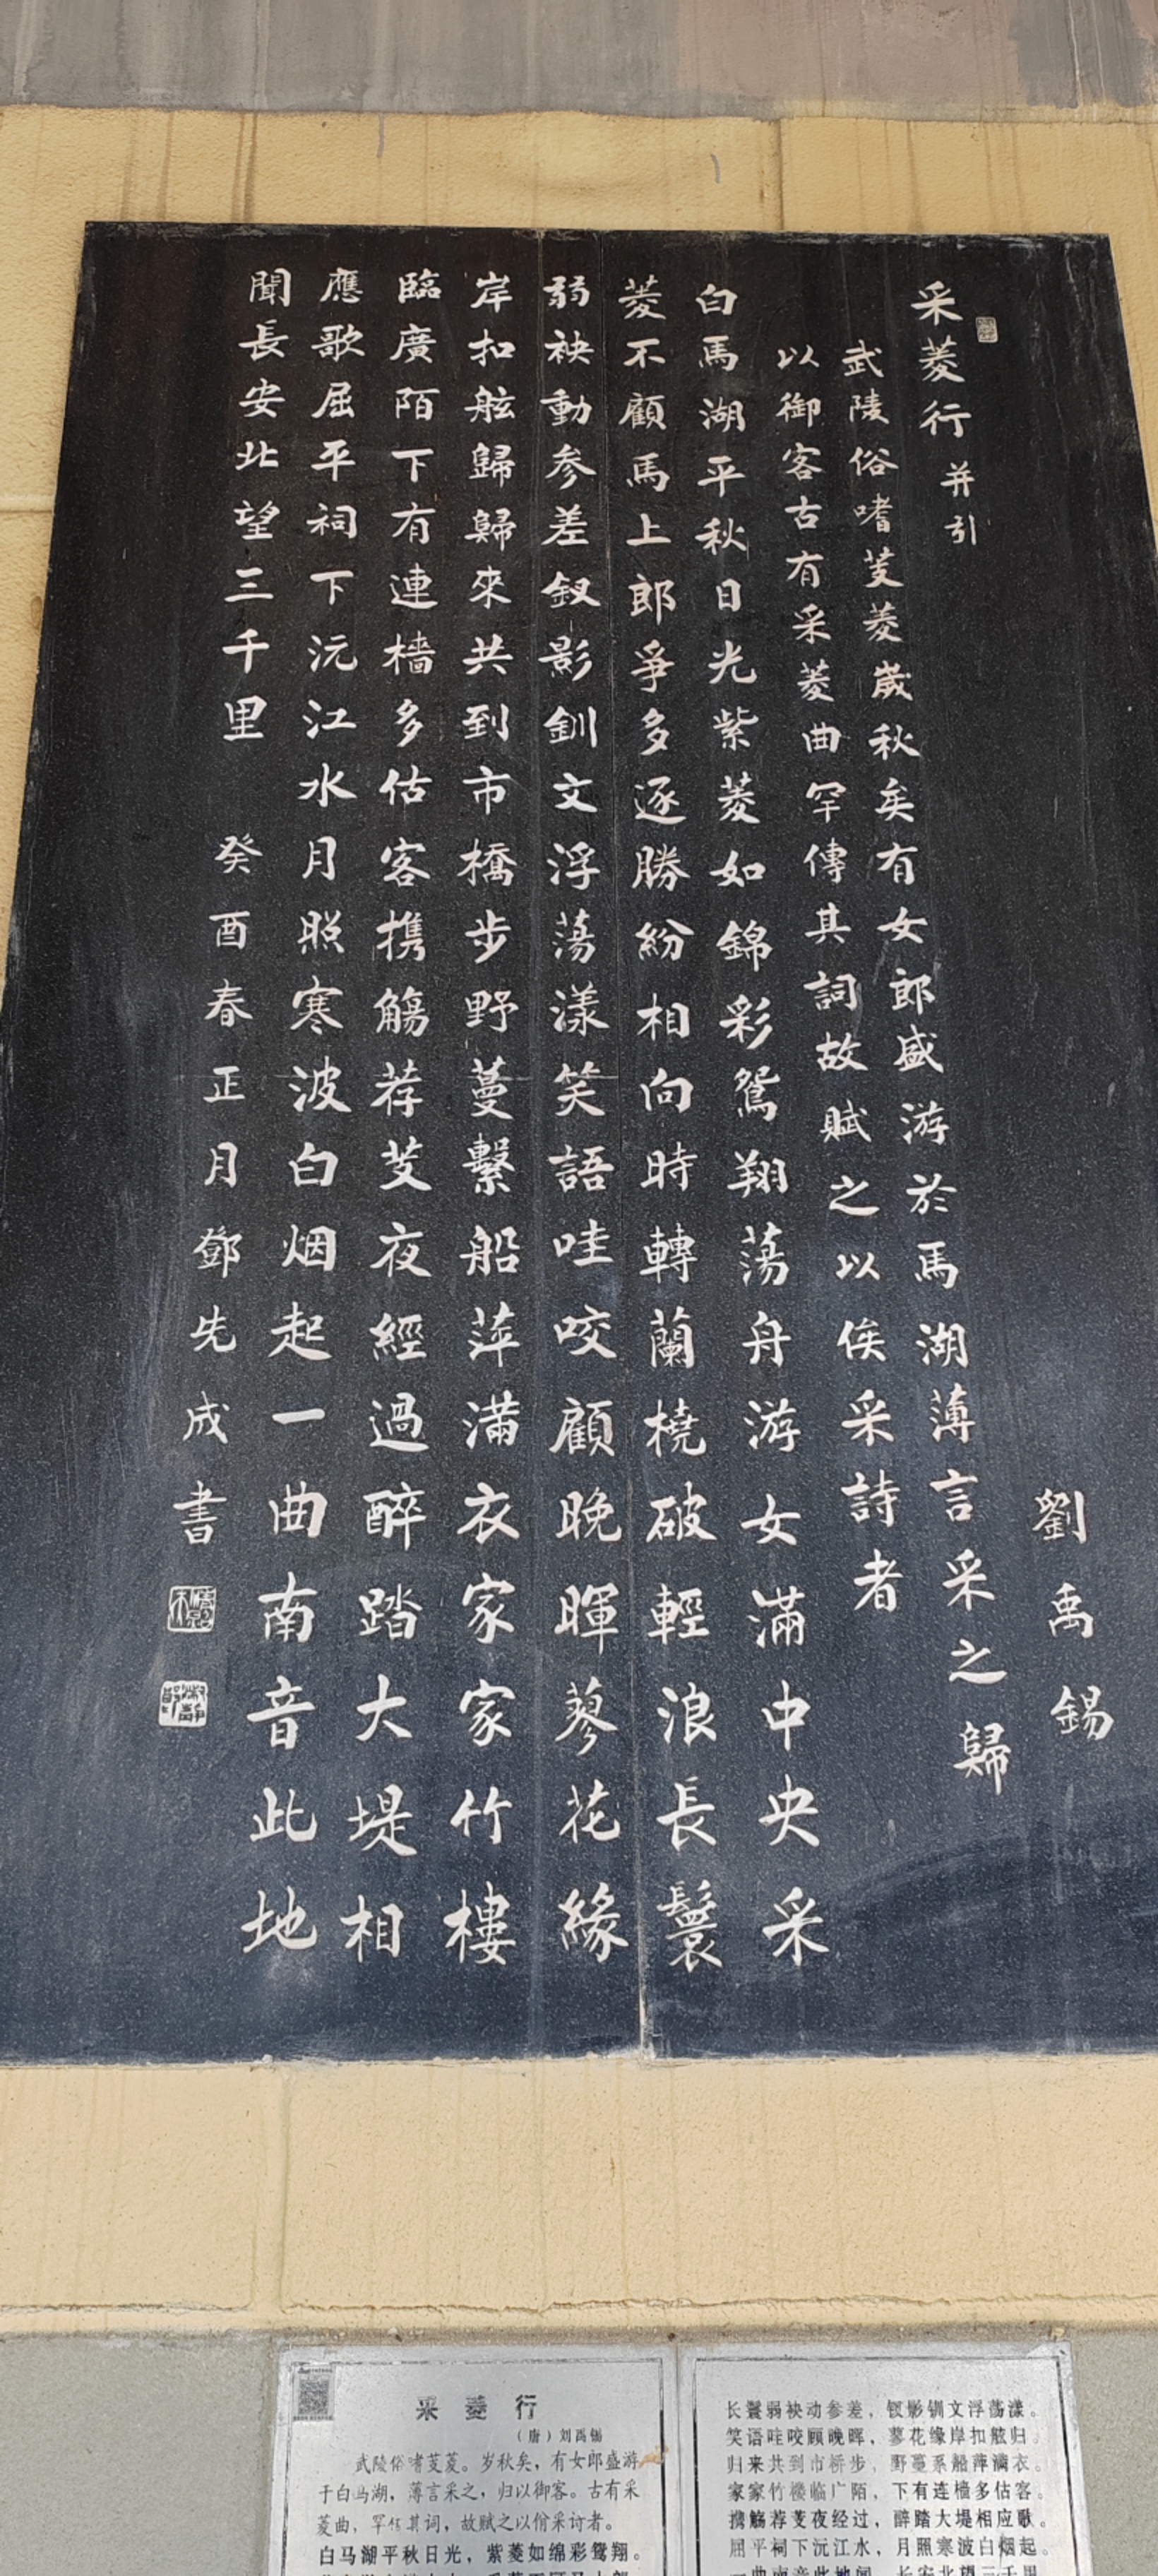 采菱行并引
劉禹錫
武陵俗嗜芰菱歲秋矣有女郎盛游於馬湖薄言采之歸
以御客古有采菱曲罕傳其詞故賦之以俟采詩者
白馬湖平秋日光紫菱如錦彩鴛翔蕩舟游女滿中央采
菱不顧馬上郎爭多逐勝紛相向時轉蘭橈破輕浪長鬟
弱袂動参差釵影釧文浮蕩漾笑語哇咬顧晚暉蓼花緣
岸扣舷歸歸來共到市橋步野蔓繫船萍滿衣家家竹樓
臨廣陌下有連檣多估客携觴荐芰夜經過醉踏大堤相
應歌屈平祠下沅江水月照寒波白烟起一曲南音此地
聞長安北望三千里
癸酉春正月鄧先成書
采菱行
（唐）刘禹锡
武陵俗嗜芰菱。岁秋矣，有女郎盛游
于白马湖，薄言采之，归以御客。古有采
菱曲，罕传其词，故赋之以俏采诗者。
白马湖平秋日光，紫菱如绵彩鸳翔。
长鬟弱袂动参差，钗影钏文浮荡漾。
笑语哇咬顾晚晖，蓼花缘岸扣舷归。
归来共到市桥步，野蔓系船萍满衣。
家家竹楼临广陌，下有连樯多估客。
携觞荐芰夜经过，醉踏大堤相应歌。
屈平祠下沅江水，月照寒波白烟起。